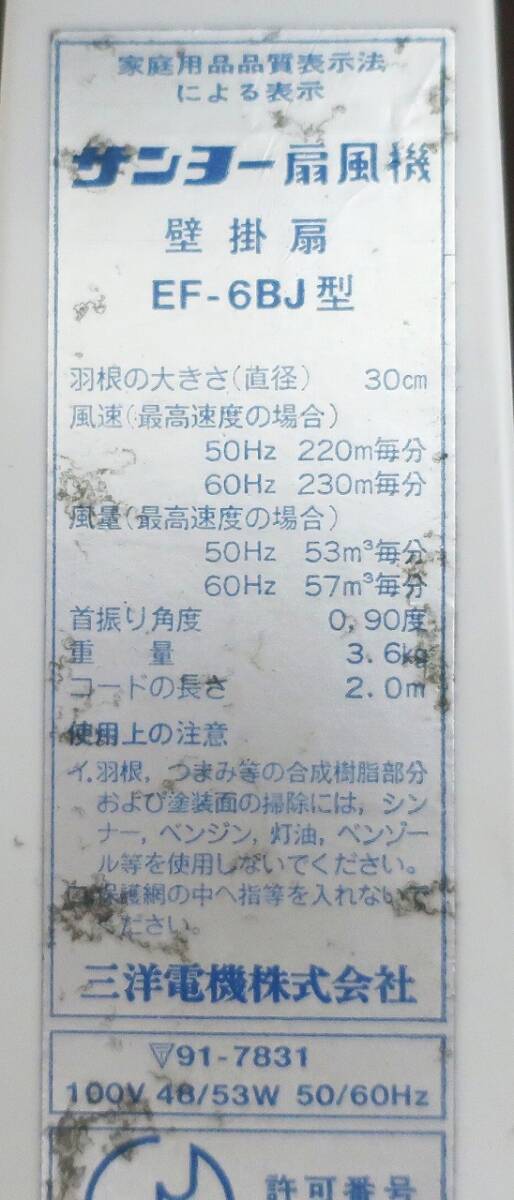 家庭用品品質表示法
による表示
サンヨー扇風機
壁掛扇
EF-6BJ型
羽根の大きさ(直径) 30cm
風速(最高速度の場合)
50Hz 220m毎分
60Hz 230m毎分
風量(最高速度の場合)
50Hz 53m³毎分
60Hz 57m³毎分
首振り角度 0,90度
重量 3.6kg
コードの長さ 2.0m
使用上の注意
イ.羽根,つまみ等の合成樹脂部分
および塗装面の掃除には,シン
ナー,ベンジン,灯油,ベンゾー
ル等を使用しないでください。
ロ.保護網の中へ指等を入れないで
ください。
三洋電機株式会社
▽91-7831
100V 48/53W 50/60Hz
許可番号